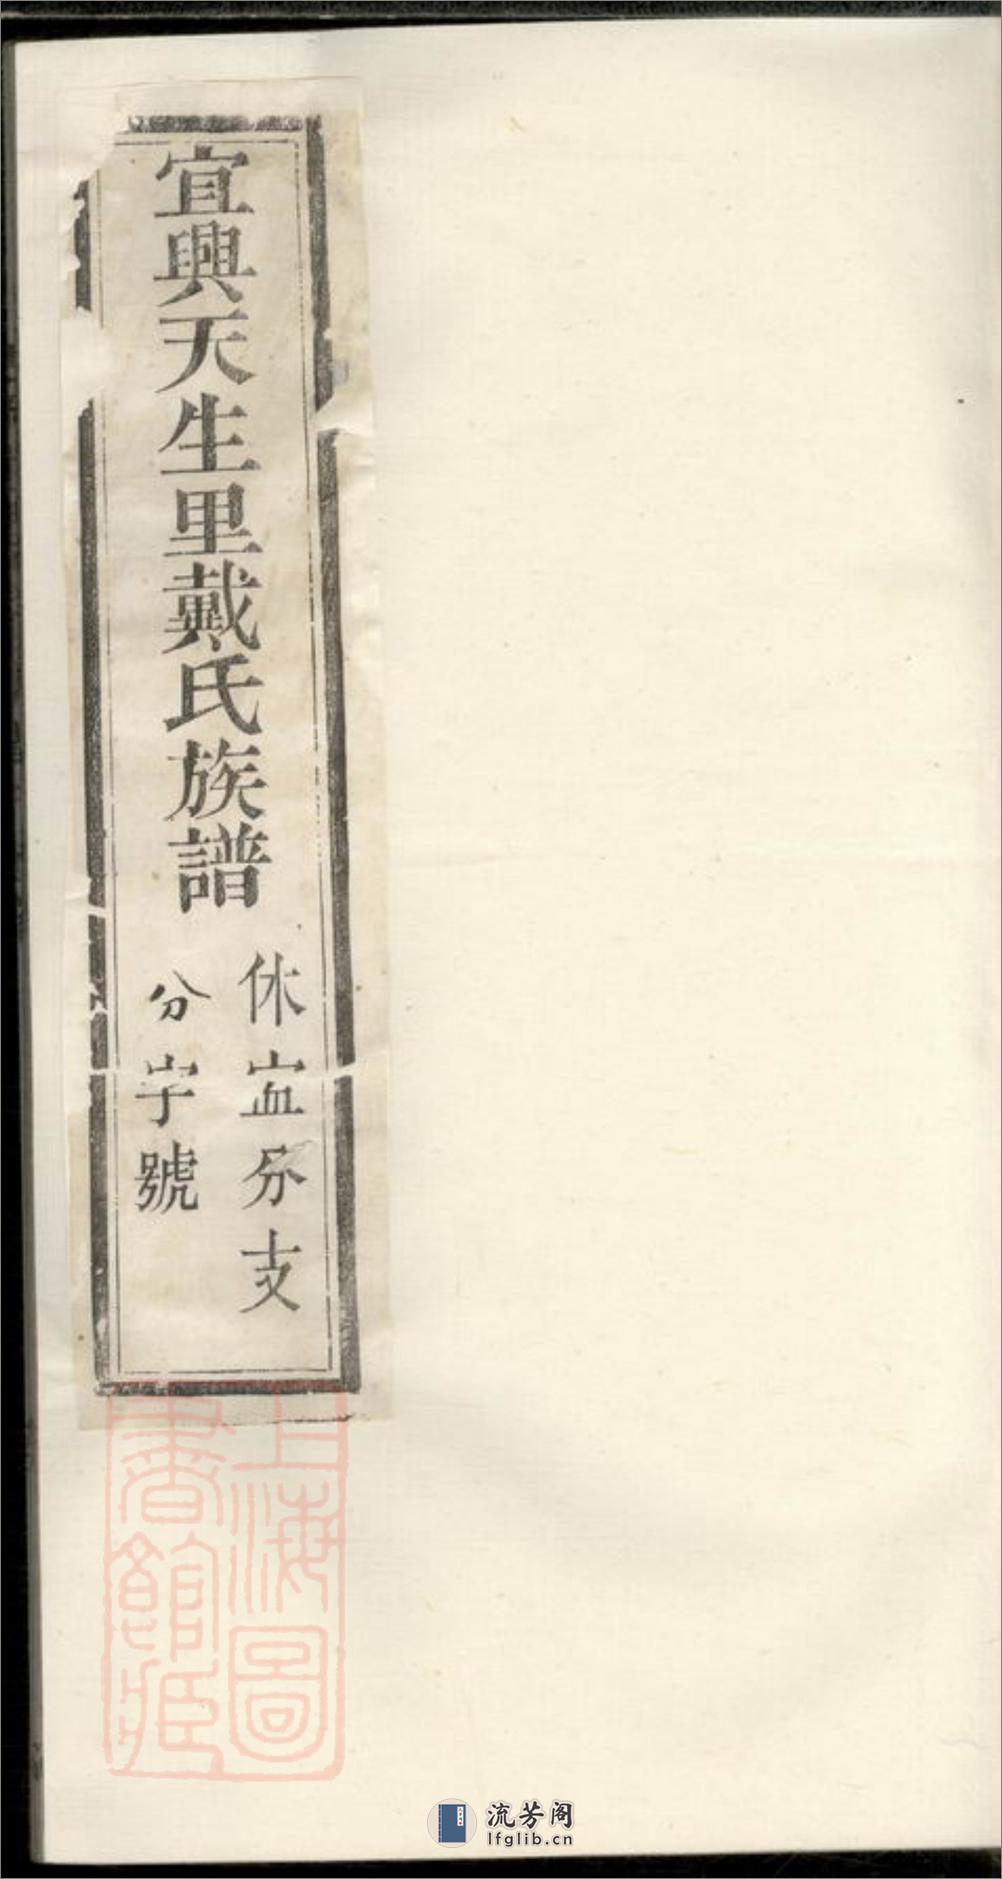 宜興天生里戴氏族譜
休寍分支
分字號
上海圖
書館藏
流芳阁
lfglib.cn